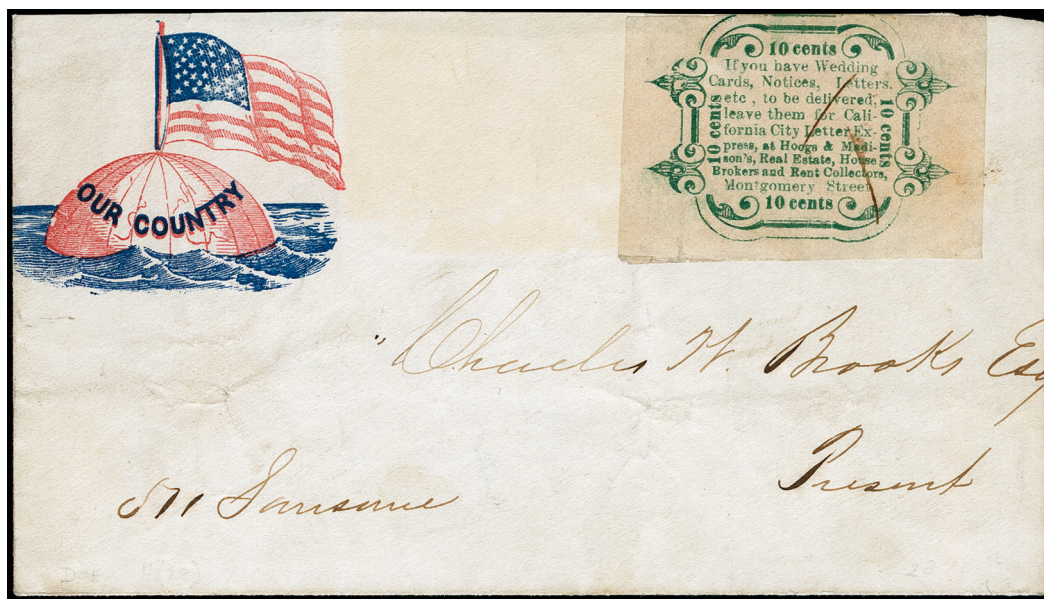 OUR COUNTRY
10 cents
If you have Wedding
Cards, Notices, Letters,
etc, to be delivered,
leave them for Cali-
fornia City Letter Ex-
press, at Hoogs & Madi-
son's, Real Estate, House
Brokers and Rent Collectors,
Montgomery Street
10 cents
10 cents
10 cents
Charles W. Brooks Esq
Present
511 Sansome